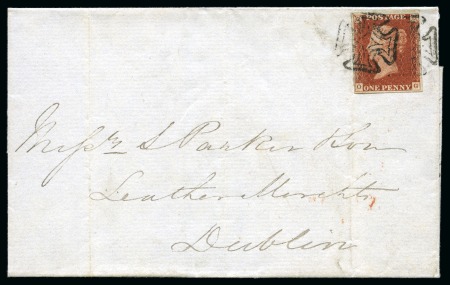 POSTAGE
O G
ONE PENNY
Messrs S Parker &
Leather Merchts
Dublin